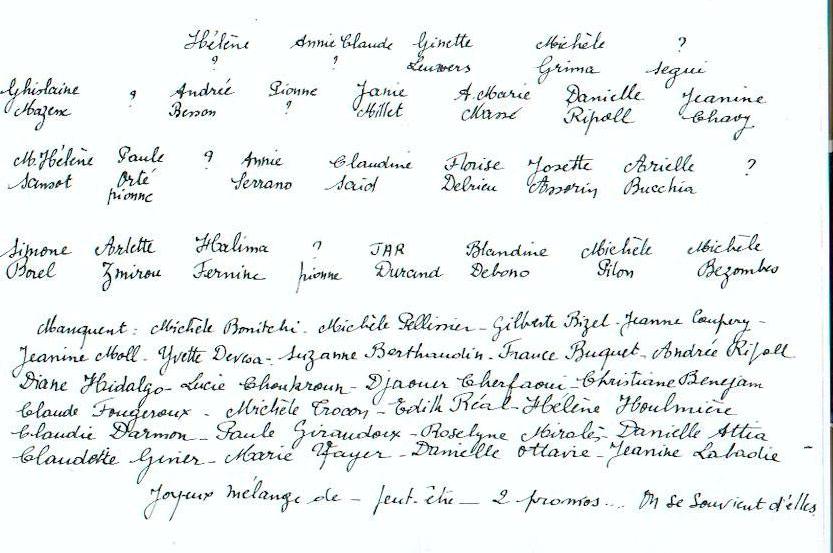 Hélène Annie Claude Ginette Michèle ?
? ? Leuwers Grima Segui
Ghislaine ? Andrée Pionne Janie A. Marie Danielle Jeanine
Mazenc Besson ? Millet Massé Ripoll Chavy
M. Hélène Paule ? Annie Claudine Florise Josette Arielle ?
Sansot Orté Serrano Said Delrieu Bucchia
pionne
Simone Arlette Halima ? JAR Blandine Michèle Michèle
Borel Zmirou Fernine pionne Durand Debono Pilon Bezombes
Manquent : Michèle Bonitchi - Michèle Pellissier - Gilberte Bizel - Jeanne Coupery -
Jeanine Moll - Yvette Devesa - Suzanne Berthaudin - France Buquet - Andrée Ripoll
Diane Hidalgo - Lucie Choukroun - Djaouer Cherfaoui - Christiane Benejam
Claude Fougeroux - Michèle Trocon - Edith Réal - Hélène Houlmière
Claudie Darmon - Paule Giraudoux - Roselyne Miralès - Danielle Attia
Claudette Givier - Marie Fayer - Danielle Ottavie - Jeanine Labadie -
Joyeux mélange de - peut-être - 2 promos.... On se souvient d'elles